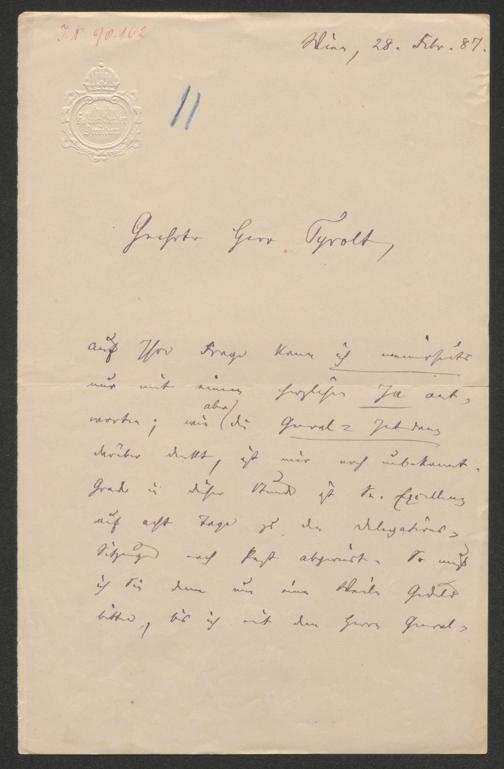 I.N 90.162
Wien, 28. Febr. 87.
11
Geehrter Herr Tyrolt,
auf Ihre Frage kann ich meinerseits
nur mit einem herzlichen Ja ant-
worten; wie aber die General-Intdanz
darüber denkt, ist mir noch unbekannt.
Grade in dieser Stunde ist Se. Excellenz
auf acht Tage zu den Delegations-
Sitzungen nach Pest abgereist. So muß
ich Sie denn um eine Weile Geduld
bitten, bis ich mit dem Herrn General-